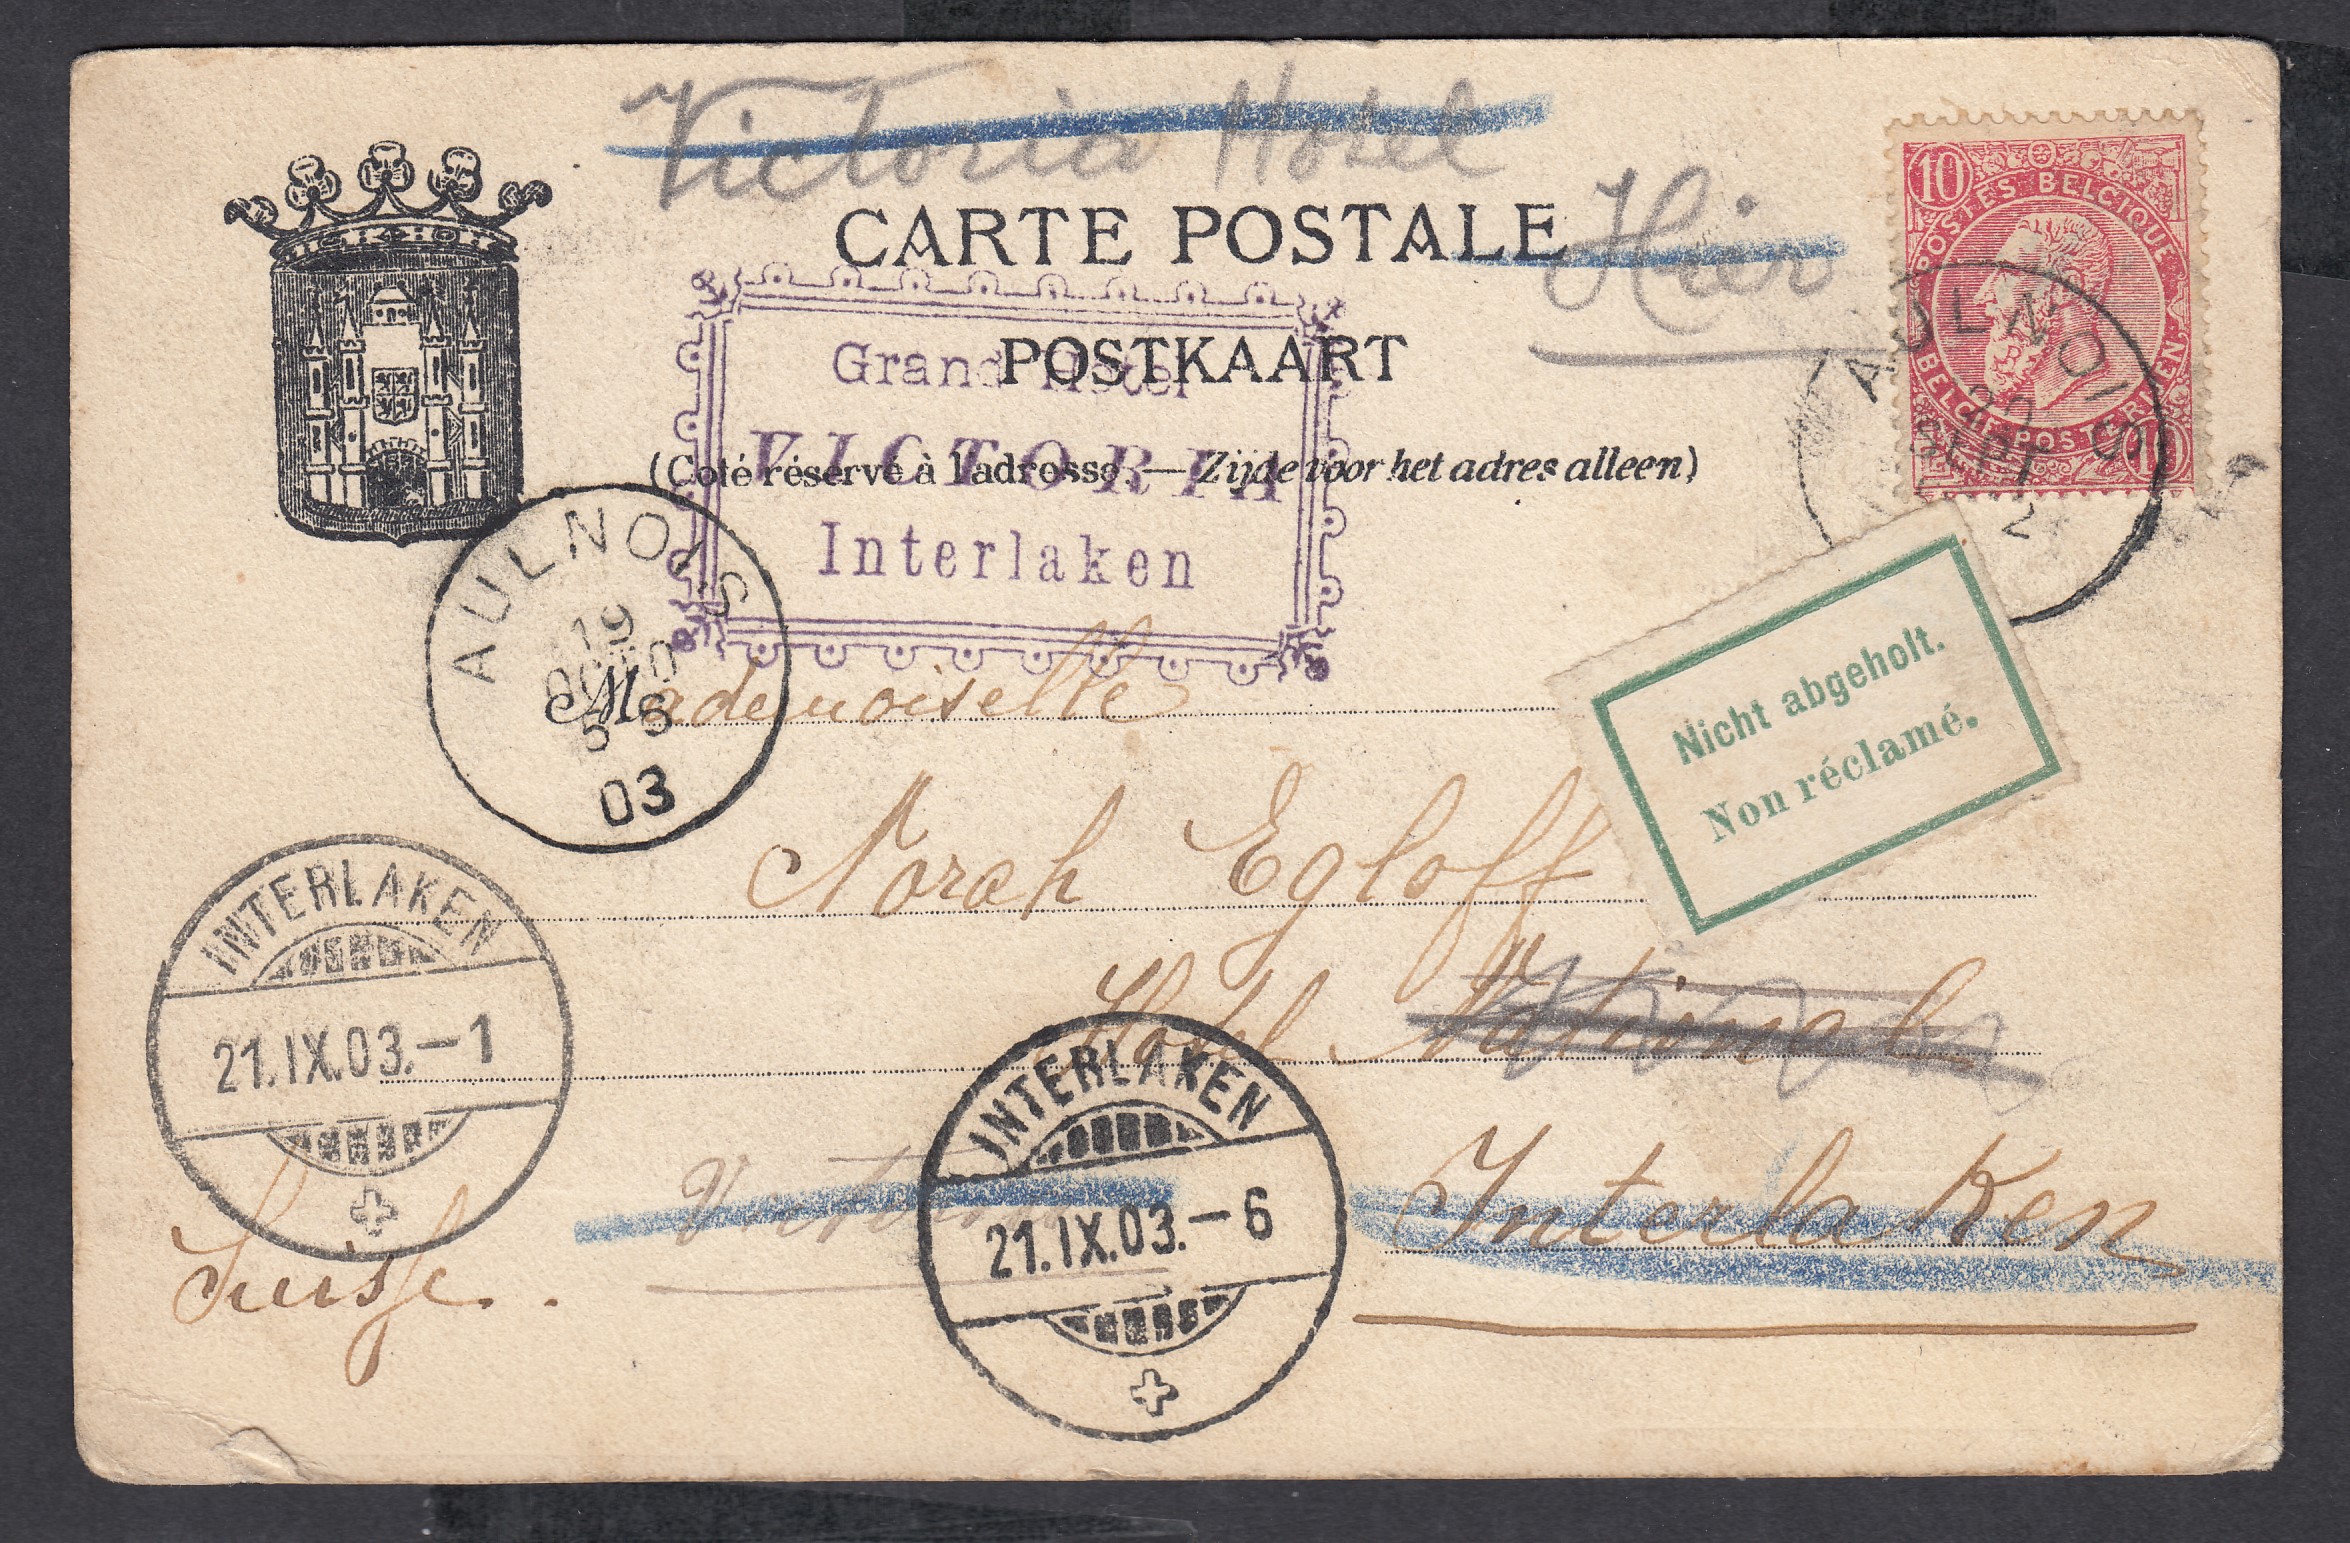 Victoria Hotel
Hier
CARTE POSTALE
POSTKAART
(Coté réservé à l'adresse. — Zijde voor het adres alleen)
10
POSTES BELGIQUE
BELGIE POSTERIJEN
10
AULNOIS
20
SEPT
2
Grand Hotel
VICTORIA
Interlaken
AULNOIS
19
OCTO
5-S
03
Nicht abgeholt.
Non réclamé.
Mademoiselle
Norah Egloff
Hotel National
Interlaken
Victoria
Suisse.
INTERLAKEN
21.IX.03.-1
INTERLAKEN
21.IX.03.-6